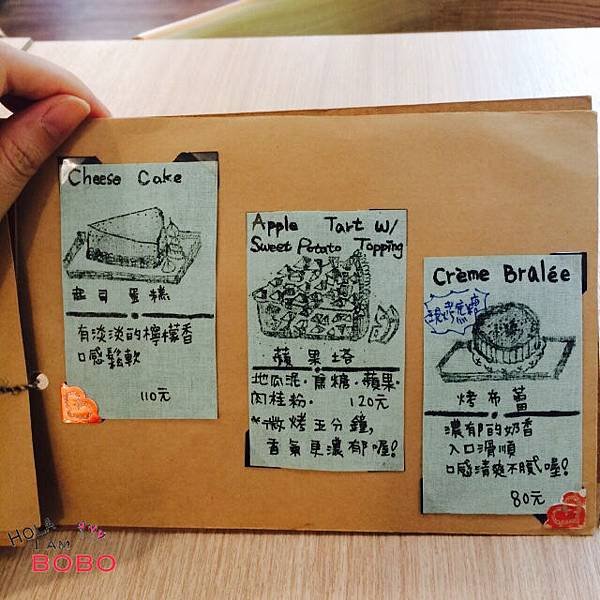 Cheese Cake
起司蛋糕
有淡淡的檸檬香
口感鬆軟
110元
Apple Tart W/
Sweet Potato Topping
蘋果塔
地瓜泥·焦糖·蘋果·
肉桂粉· 120元
*微烤五分鐘,
香氣更濃郁喔!
Crème Bralée
現烤焦糖
烤布蕾
濃郁的奶香
入口滑順
口感清爽不膩喔!
80元
HOLA
I AM
BOBO